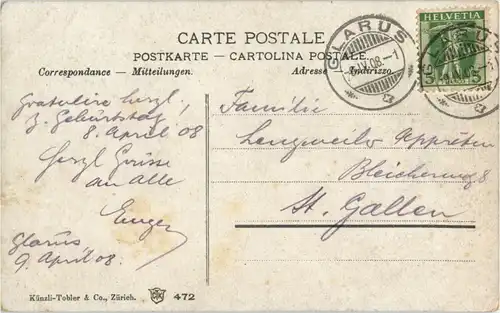 CARTE POSTALE
POSTKARTE — CARTOLINA POSTALE
Correspondance — Mitteilungen.
Adresse — Indirizzo.
GLARUS
HELVETIA
Gratulire herzl,
z. Geburtstag
8. April 08
Herzl Grüsse
an Alle
Eugen
Glarus
9. April 08.
Familie
Lengweiler Appréteur
Bleicherweg 8
St. Gallen
Künzli-Tobler & Co., Zürich.
472